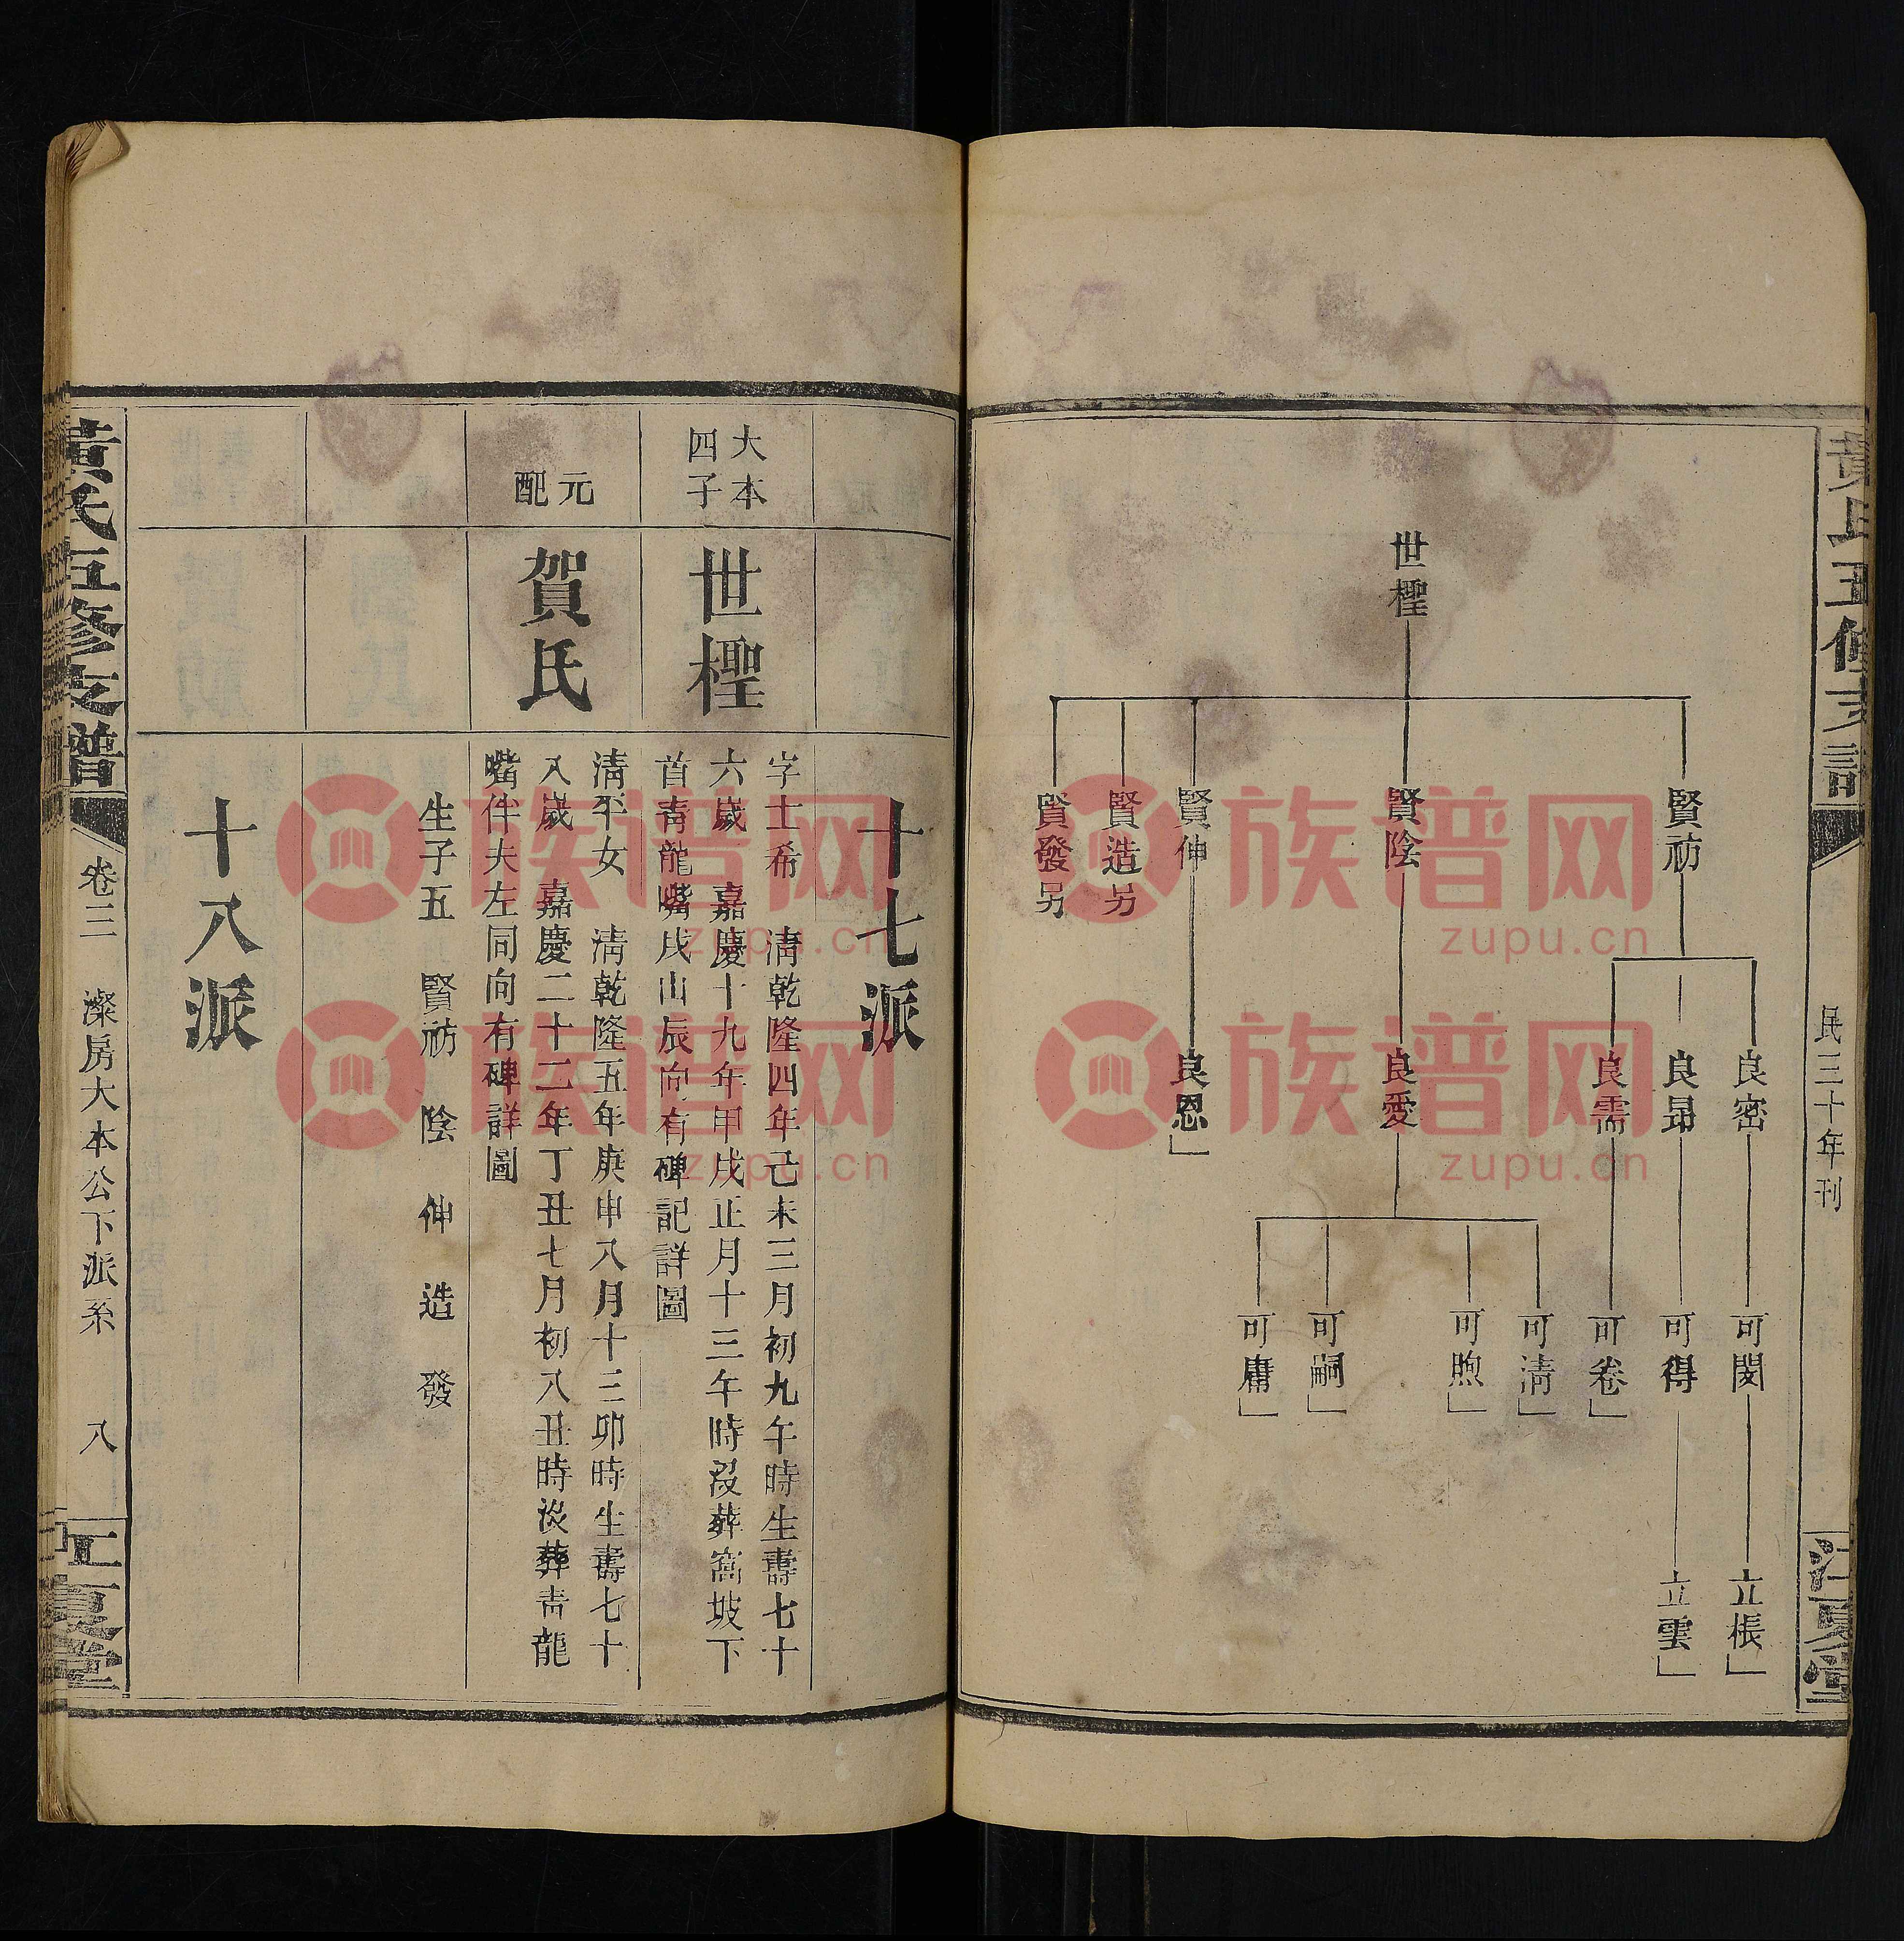 黃氏五修支譜
民三十年刊
江夏堂
世檉
賢祊
賢陰
賢伸
賢造另
賢發另
良密
良昻
良需
良愛
良恩
可閔
可得
可卷
可淸
可煦
可嗣
可庸
立棖
立雲
十七派
大本四子
世檉
字士希 淸乾隆四年己未三月初九午時生壽七十
六歲 嘉慶十九年甲戌正月十三午時沒葬窩坡下
首靑龍嘴戌山辰向有碑記詳圖
元配
賀氏
淸平女 淸乾隆五年庚申八月十三卯時生壽七十
八歲 嘉慶二十二年丁丑七月初八丑時沒葬靑龍
嘴伴夫左同向有碑詳圖
生子五 賢祊 陰 伸 造 發
十八派
黃氏五修支譜
卷三 澯房大本公下派系 八
江夏堂
族谱网
zupu.cn
族谱网
zupu.cn
族谱网
zupu.cn
族谱网
zupu.cn